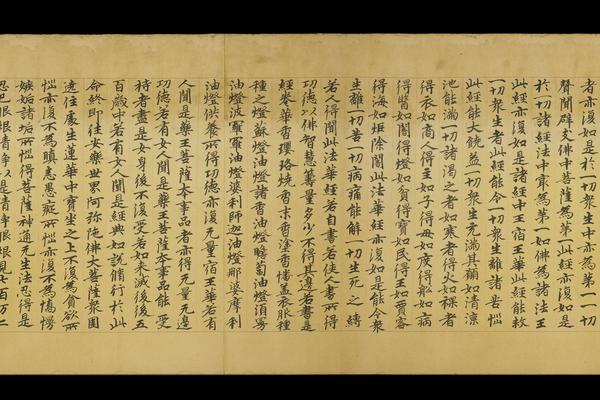 者亦復如是於一切衆生中亦為第一一切
聲聞辟支佛中菩薩為第一此經亦復如是
於一切諸經法中寂為第一如佛為諸法王
此經亦復如是諸經中王宿王華此經能救
一切衆生者此經能令一切衆生離諸苦惱
此經能大饒益一切衆生充滿其願如清涼
池能滿一切諸渴乏者如寒者得火如裸者
得衣如商人得主如子得母如度得船如病
得醫如闇得燈如貧得寶如民得王如賈客
得海如炬除闇此法華經亦復如是能令衆
生離一切苦一切病痛能解一切生死之縛
若人得聞此法華經若自書若使人書所得
功德以佛智慧籌量多少不得其邊若書是
經卷華香瓔珞燒香末香塗香幡蓋衣服種
種之燈蘇燈油燈諸香油燈瞻蔔油燈須曼
油燈波羅羅油燈婆利師迦油燈那婆摩利
油燈供養所得功德亦復无量宿王華若有
人聞是藥王菩薩本事品者亦得无量无邊
功德若有女人聞是藥王菩薩本事品能受
持者盡是女身後不復受若如来滅後後五
百歲中若有女人聞是經典如說脩行於此
命終即往安樂世界阿弥陁佛大菩薩衆圍
遶住處生蓮華中寶坐之上不復為貪欲所
惱亦復不為瞋恚愚癡所惱亦復不為憍慢
嫉妬諸垢所惱得菩薩神通无生法忍得是
忍已眼根清淨以是清淨眼根見七百万二